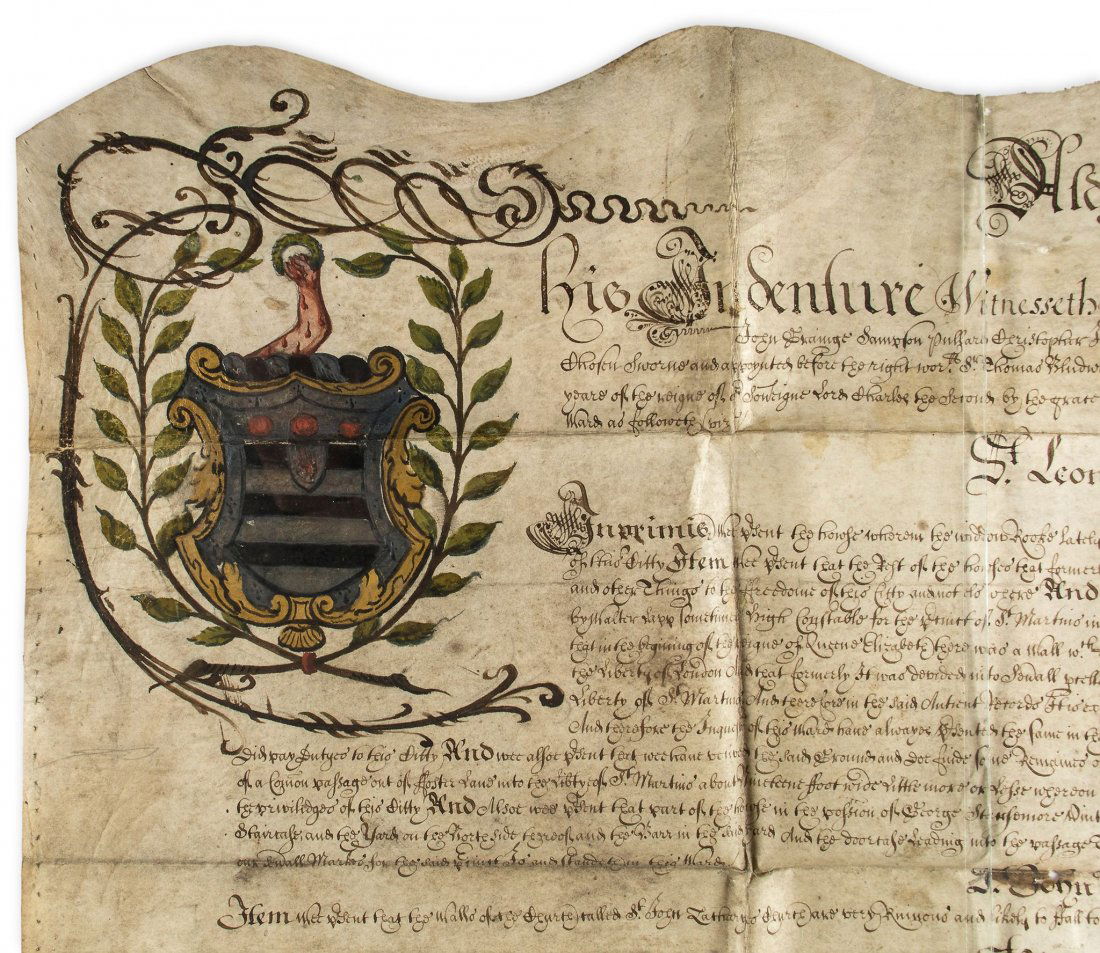 Ald
his Indenture Witnesseth
John Sampson Christopher
Chosen Sworne and appoynted before the right wor. Sr Thomas Bludw
yeare of the reigne of Soveraigne Lord Charles the Second by the grace
Ward as followeth viz
St Leon
Inprimis Wee psent the howse wherein the widdow Rooke latel
of this Citty Item wee psent that the Rest of the howses that former
and other things to the ffreedome of this Citty and not els where And
by Walter sometimes high Constable for the of St Martins in
that in the begining of the reigne of Queene Elizabeth there was a Wall wth
the Liberty of London And that formerly it was devided into
Liberty of St Martins And therefore in the said Antient Records
And therefore the Inquest of this Ward have alwayes psented the same in th
Did pay dutyes to this Citty And wee alsoe psent that wee have veiwed the said Ground and doe finde some Remaines o
of a Comon passage out of ffoster Lane into the Libtye of St Martins about nineteene foot wide little more or lesse whereon
the priviledges of this Citty And Alsoe wee psent that part of the howse in the possion of George
Staircase and the Yard on the North side thereof and the Barr in the And the doorcase leading into the passage
our Markes for the said and stande than this Ward
St John
Item wee psent that the Walls of the Church called St John Zacharyes Church are very Ruinous and likely to fall to